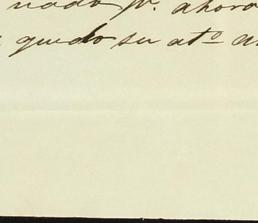 nado pr. ahora
quedo su atº